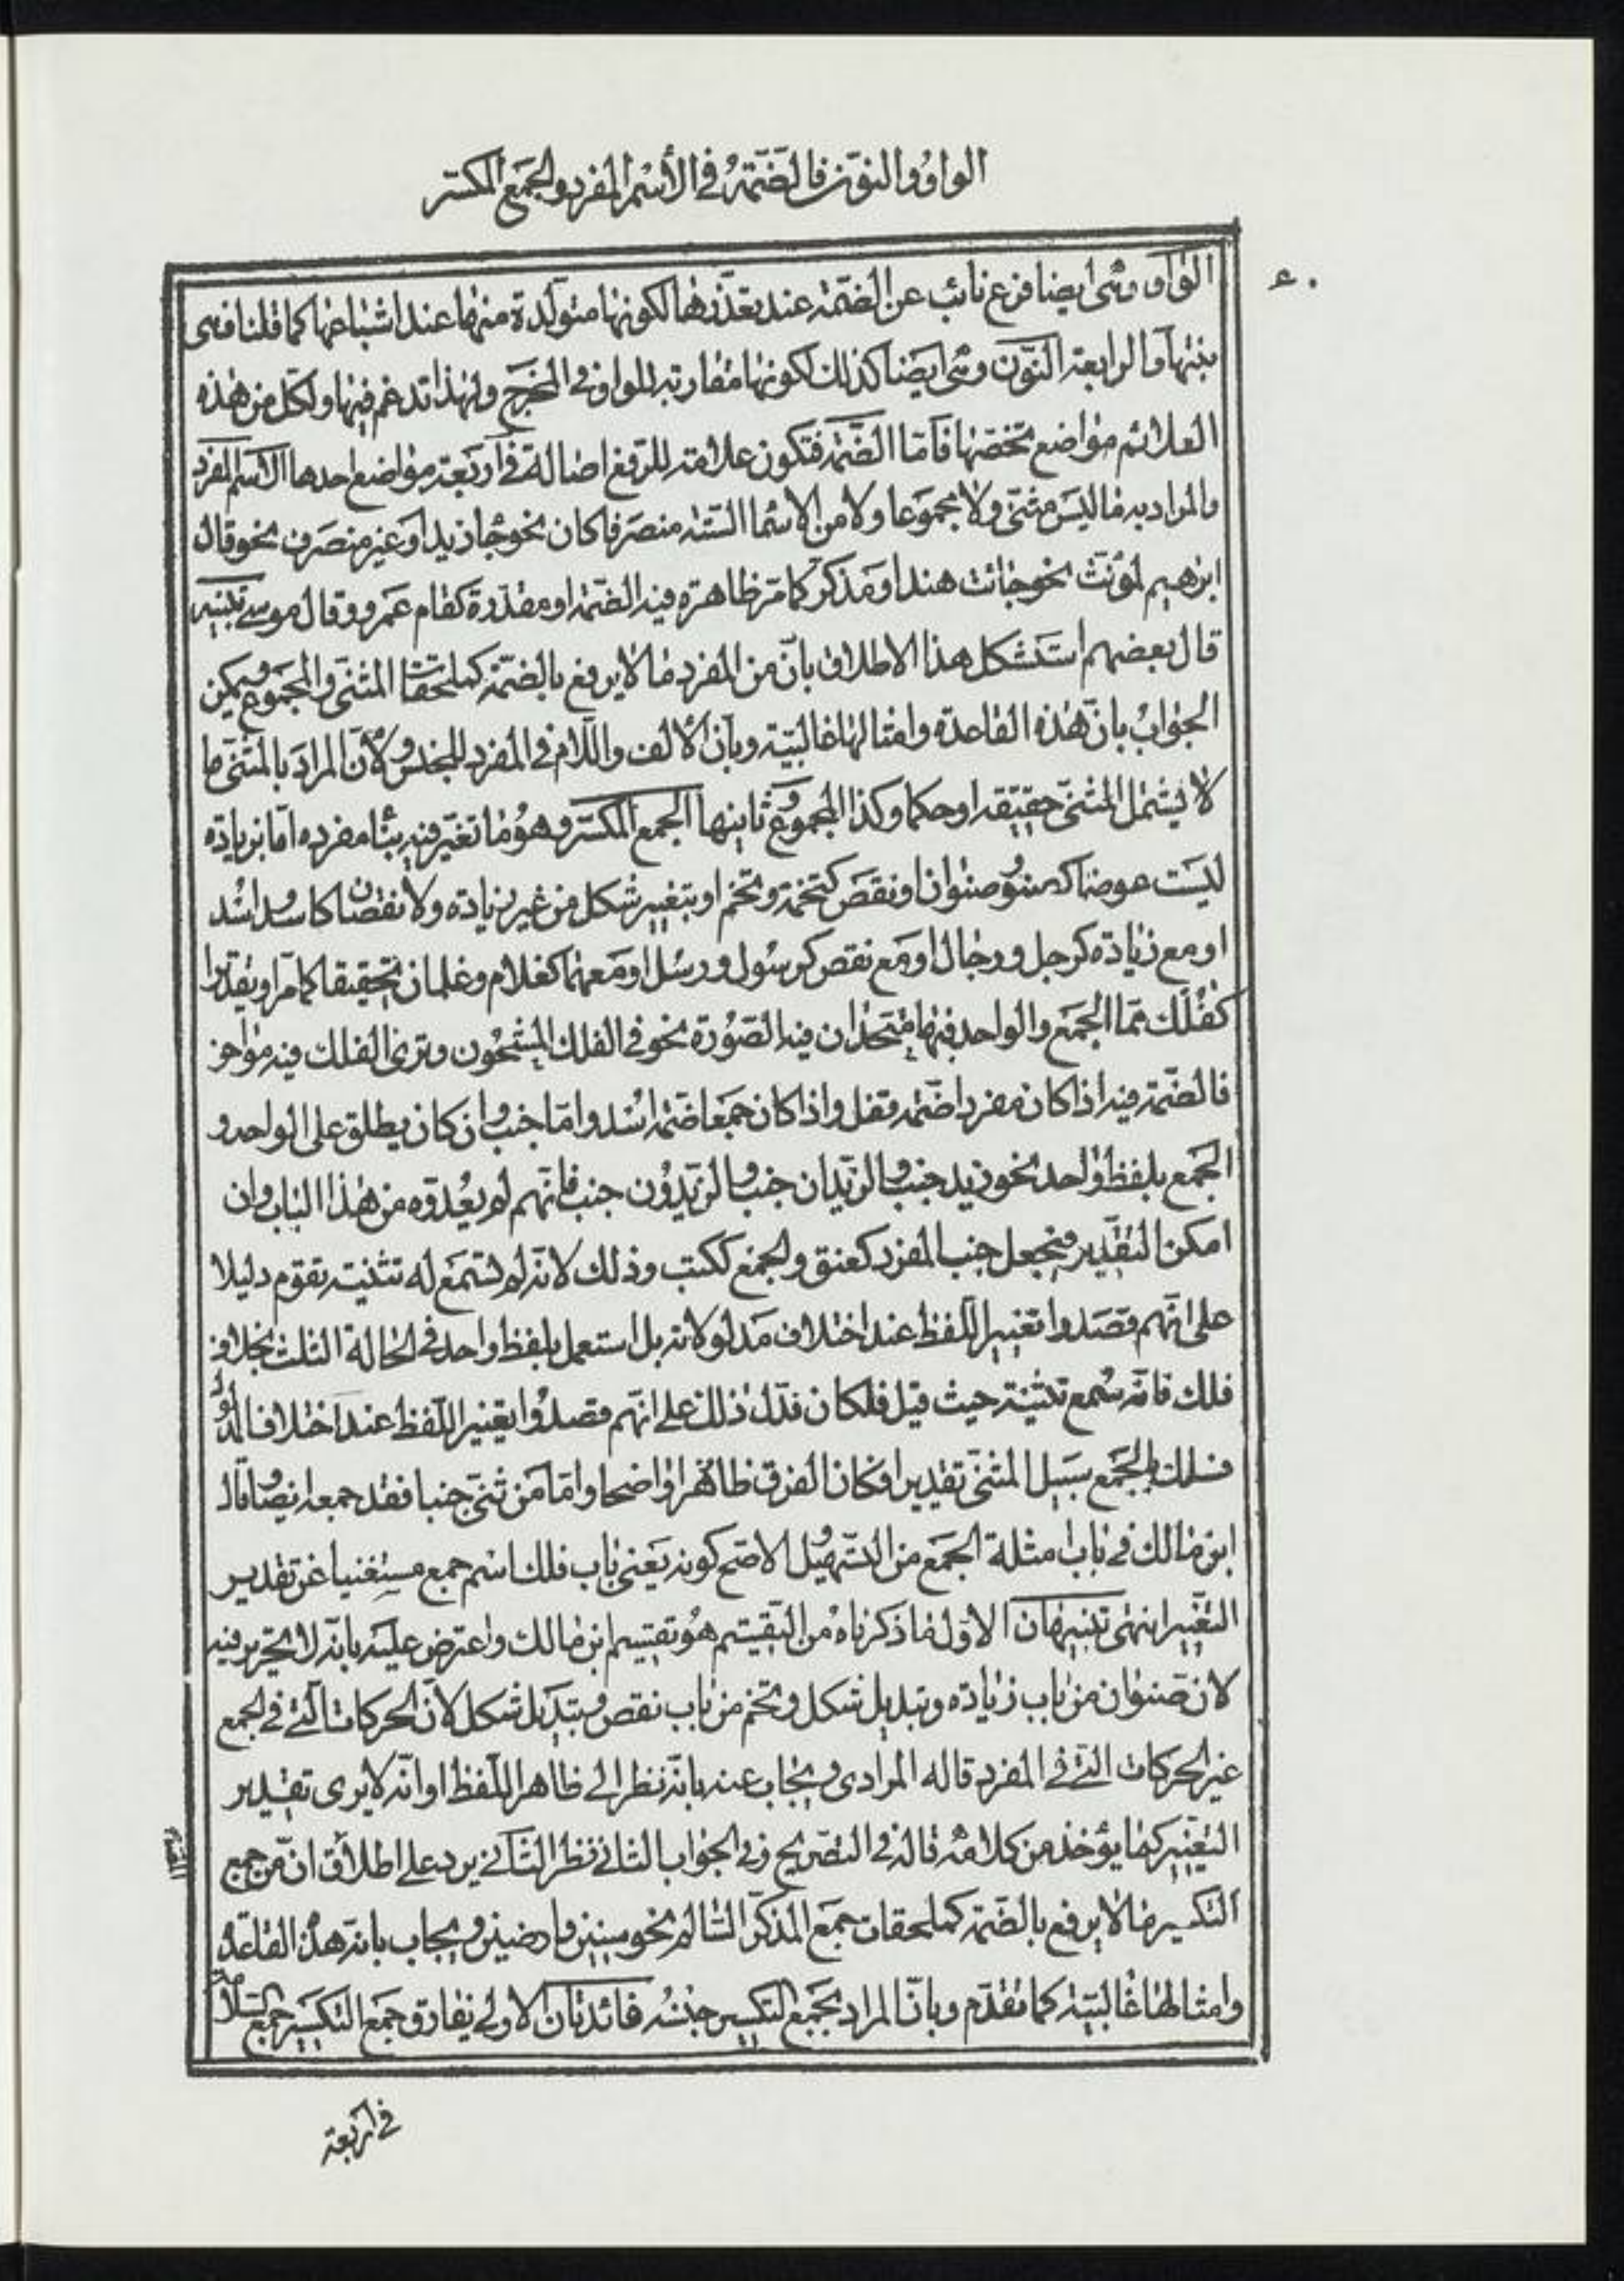 الواو والنون فالضمة في الأسم المفرد والجمع المكسر
الواو وهي ايضا فرع نائب عن الضمة عند تعذرها لكونها متولدة منها عند اشباعها كما قلنا فهي
بنتها والرابعة النون وهي ايضا كذلك لكونها مقاربة للواو في المخرج ولهذا تدغم فيها ولكل من هذه
العلائم مواضع تخصها فاما الضمة فتكون علامة للرفع اصالة في اربعة مواضع احدها الاسم المفرد
والمراد به ما ليس مثنى ولا مجموعا ولا من الاسما الستة منصرفا كان نحو جا زيد او غير منصرف نحو قال
ابرهيم لمؤنث نحو جائت هند او مذكر كما مر ظاهرة فيه الضمة او مقدرة كقام عمرو وقال موسى تنبيه
قال بعضهم استشكل هذا الاطلاق بان من المفرد ما لا يرفع بالضمة كملحقات المثنى والمجموع ويمكن
الجواب بان هذه القاعدة وامثالها غالبية وبان الالف واللام في المفرد للجنس ولأن المراد بالمثنى ما
لا يشمل المثنى حقيقة او حكما وكذا المجموع وثانيها الجمع المكسر وهو ما تغير فيه بنا مفرده اما بزيادة
ليست عوضا كصنو وصنوان او نقص كتخمة وتخم او بتغيير شكل من غير زيادة ولا نقصان كاسد واسد
او مع زيادة كرجل ورجال او مع نقص كرسول ورسل او معهما كغلام وغلمان تحقيقا كما مر او تقديرا
كفلك مما الجمع والواحد فيها متحدان فيه الصورة نحو في الفلك المشحون وترى الفلك فيه مواخر
فالضمة فيه اذا كان مفردا ضمة قفل واذا كان جمعا ضمة اسد واما جنب وان كان يطلق على الواحد و
الجمع بلفظ واحد نحو زيد جنب والزيدان جنب والزيدون جنب فانهم لم يعدوه من هذا الباب وان
امكن التقدير فيجعل جنب المفرد كعنق والجمع ككتب وذلك لانه لم تسمع له تثنية تقوم دليلا
على انهم قصدوا تغيير اللفظ عند اختلاف مدلولاته بل استعمل بلفظ واحد في الحالة الثلث بخلاف
فلك فانه سمع تثنيته حيث قيل فلكان فدل ذلك على انهم قصدوا تغيير اللفظ عند اختلاف المدلول
فسلك بالجمع سبيل المثنى تقديرا وكان الفرق ظاهرا واضحا واما من ثنى جنبا فقد جمعه ايضا وقال
ابن مالك في باب امثلة الجمع من التسهيل والاصح كونه يعني باب فلك اسم جمع مستغنيا عن تقدير
التغيير انتهى تنبيهان الاول ما ذكرناه من التقسيم هو تقسيم ابن مالك واعترض عليه بانه لا تحرير فيه
لان صنوان من باب زيادة وتبديل شكل وتخم من باب نقص وتبديل شكل لان الحركات التي في الجمع
غير الحركات التي في المفرد قاله المرادي ويجاب عنه بانه نظر الى ظاهر اللفظ او انه لا يرى تقدير
التغيير كما يؤخذ من كلامه قاله في التصريح وفي الجواب الثاني نظر الثاني يرد على اطلاق ان من جمع
التكسير ما لا يرفع بالضمة كملحقات جمع المذكر السالم نحو سنين وارضين ويجاب بانه هذه القاعدة
وامثالها غالبية كما تقدم وبان المراد بجمع التكسير جنسه فائدتان الاولى يفارق جمع التكسير جمع السلامة
في اربعة